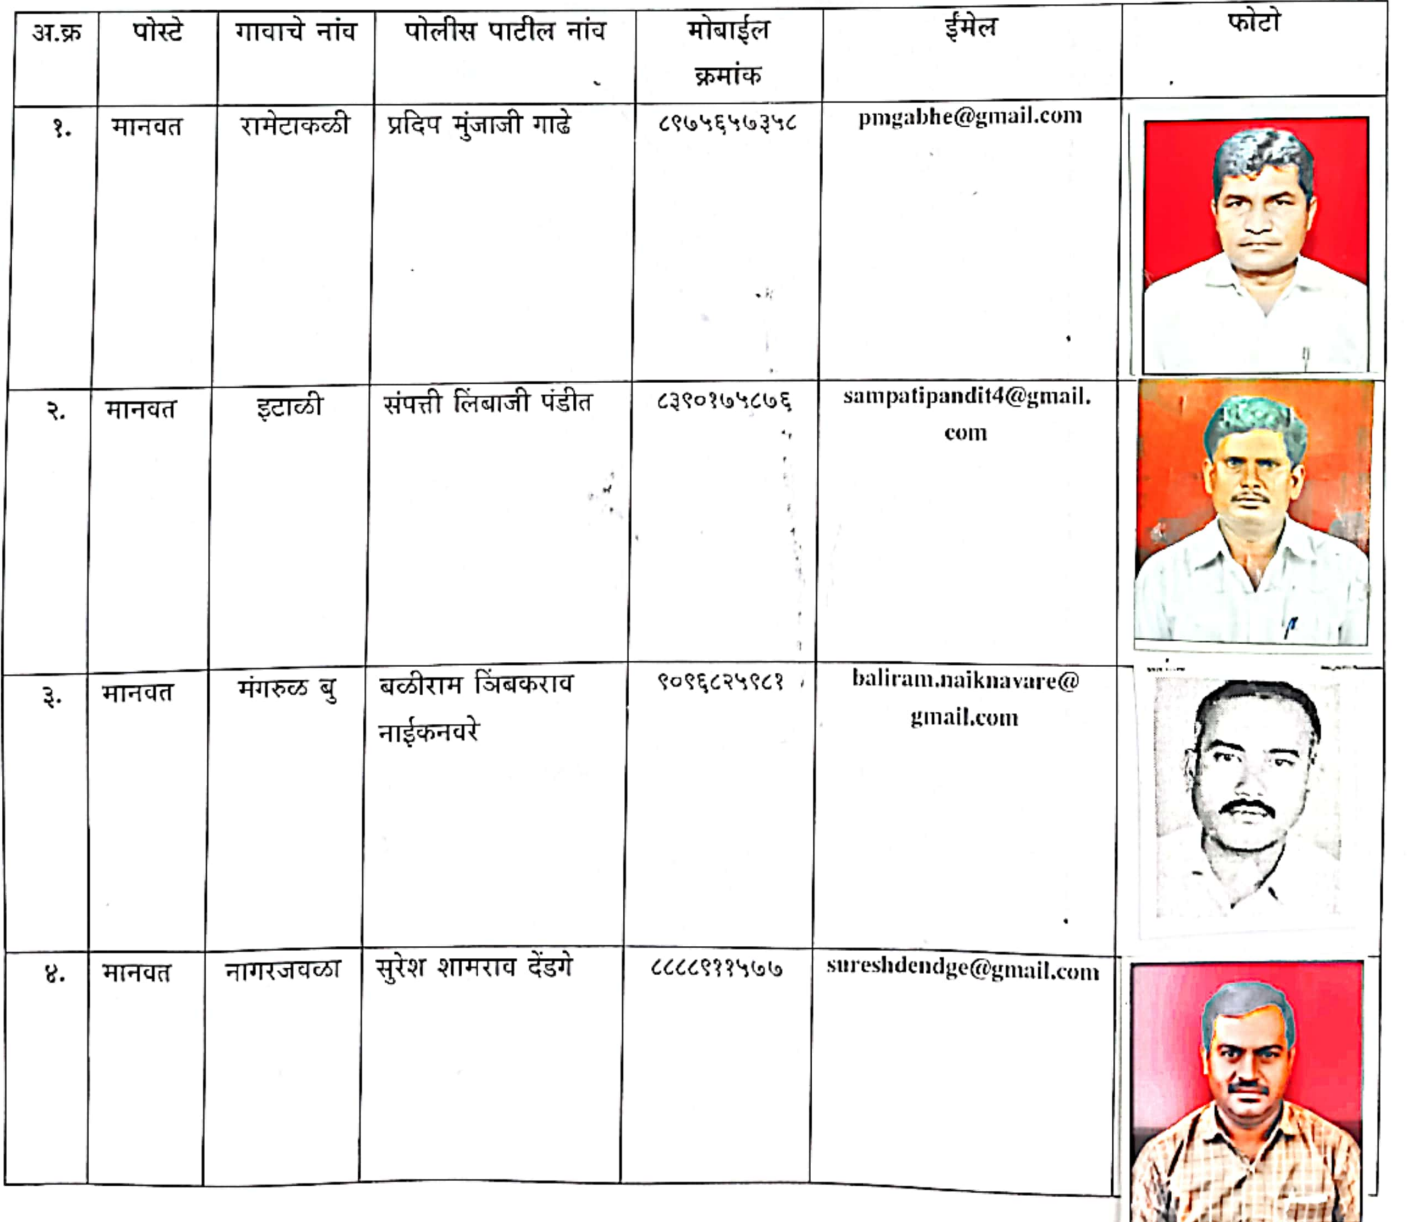 अ.क्र पोस्टे गावाचे नांव पोलीस पाटील नांव मोबाईल क्रमांक ईमेल फोटो
१. मानवत रामेटाकळी प्रदिप मुंजाजी गाढे ८९७५६५७३५८ pmgabhe@gmail.com
२. मानवत इटाळी संपत्ती लिंबाजी पंडीत ८३९०१७५८७६ sampatipandit4@gmail.
com
३. मानवत मंगरुळ बु बळीराम त्रिंबकराव ९०९६८२५९८१ baliram.naiknavare@
नाईकनवरे gmail.com
४. मानवत नागरजवळा सुरेश शामराव देंडगे ८८८८९११५७७ sureshdendge@gmail.com